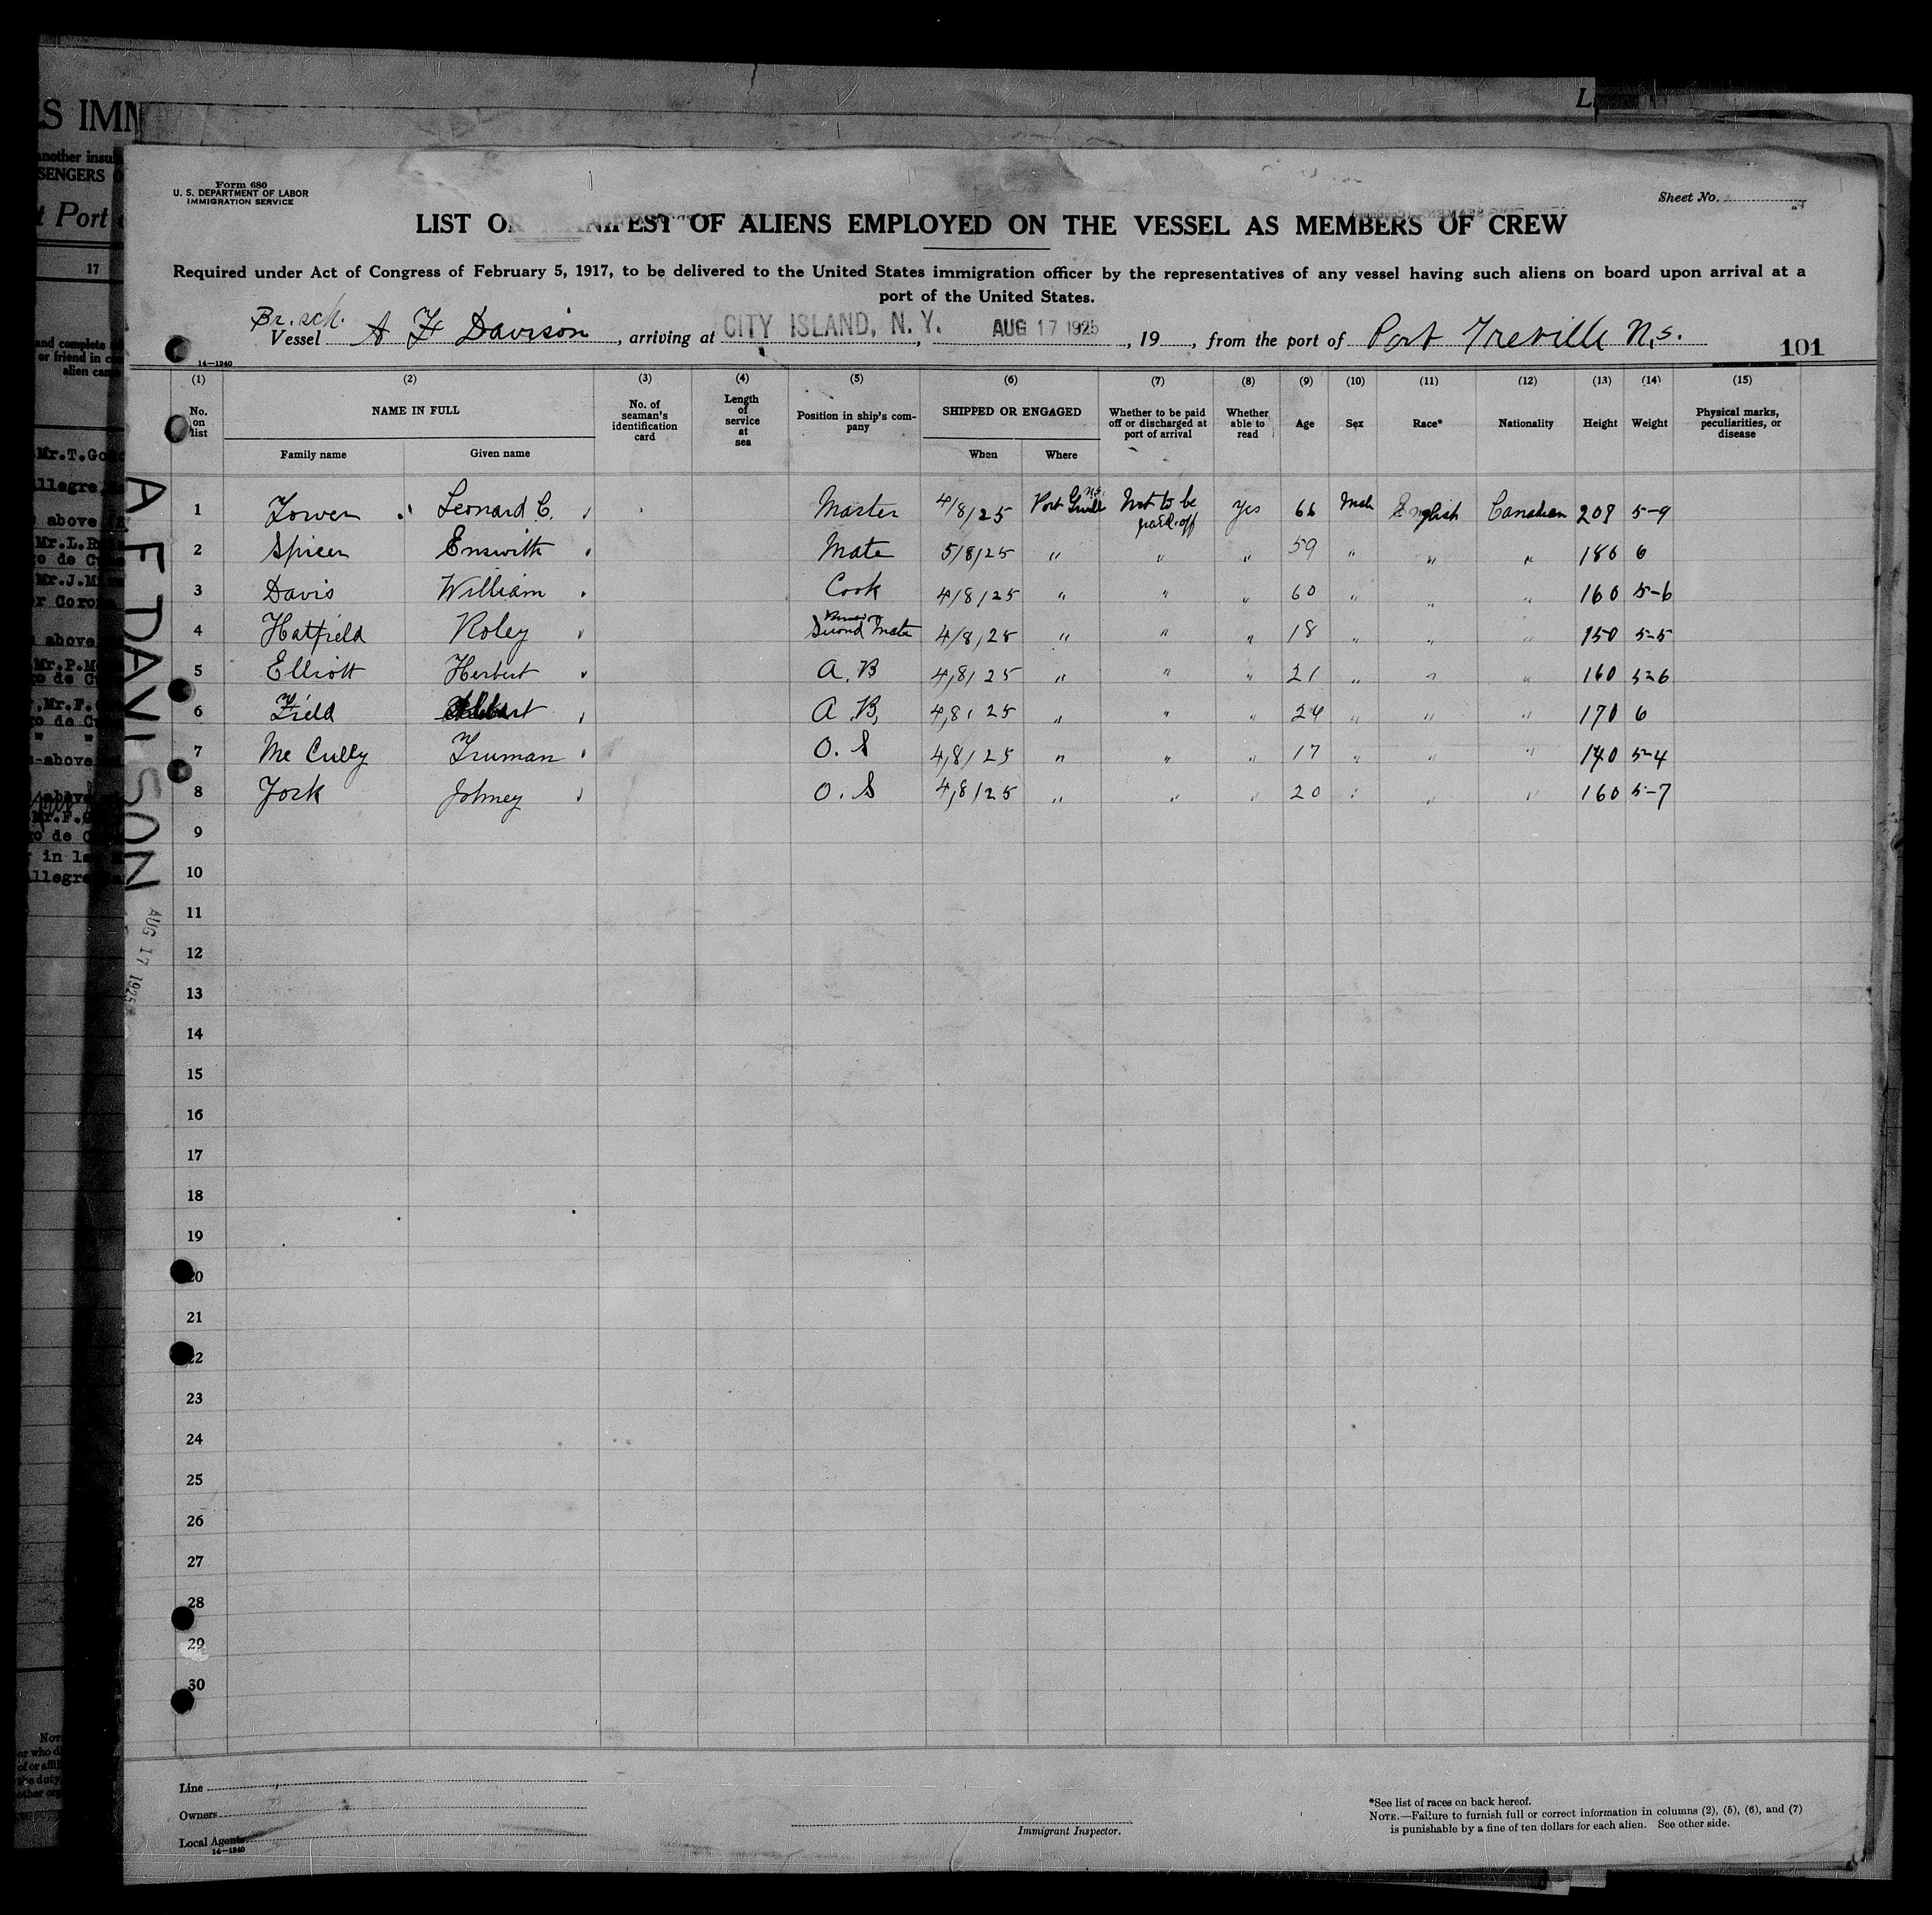 S IMM
another insu
SENGERS O
t Port
17
and complete
or friend in
alien can
Mr.T.Go
llegre
above
Mr.L.R
o de Cu
Mr.J.M
r Coron
above
Mr.P.M
o de Cu
,Mr.F.
o de Cu
" "
-above
above
Mr.F.
o de C
in la
llegre
Form 680
U. S. DEPARTMENT OF LABOR
IMMIGRATION SERVICE
Sheet No.
LIST OR MANIFEST OF ALIENS EMPLOYED ON THE VESSEL AS MEMBERS OF CREW
Required under Act of Congress of February 5, 1917, to be delivered to the United States immigration officer by the representatives of any vessel having such aliens on board upon arrival at a
port of the United States.
Br. sch.
Vessel A F Davison, arriving at CITY ISLAND, N. Y., AUG 17 1925, 19, from the port of Port Greville N.S.
14—1240
101
(1) (2) (3) (4) (5) (6) (7) (8) (9) (10) (11) (12) (13) (14) (15)
No. on list
NAME IN FULL
Family name
Given name
No. of seaman's identification card
Length of service at sea
Position in ship's company
SHIPPED OR ENGAGED
When
Where
Whether to be paid off or discharged at port of arrival
Whether able to read
Age
Sex
Race*
Nationality
Height
Weight
Physical marks, peculiarities, or disease
A F DAVISON
AUG 17 1925
1 Tower Leonard C. Master 4/8/25 Port Greville N.S. Not to be paid off Yes 66 Male English Canadian 208 5-9
2 Spicer Enswith Mate 5/8/25 " " " 59 " " " 180 6
3 Davis William Cook 4/8/25 " " " 60 " " " 160 5-6
4 Hatfield Roley Second Mate 4/8/25 " " " 18 " " " 150 5-5
5 Elliott Herbert A.B 4/8/25 " " " 21 " " " 160 5-6
6 Field A.B. 4/8/25 " " " 24 " " " 170 6
7 Mc Cully Truman O.S 4/8/25 " " " 17 " " " 140 5-4
8 York Johney O.S 4/8/25 " " " 20 " " " 160 5-7
9
10
11
12
13
14
15
16
17
18
19
20
21
22
23
24
25
26
27
28
29
30
Line
Owners
Local Agents
14—1240
Immigrant Inspector.
*See list of races on back hereof.
NOTE.—Failure to furnish full or correct information in columns (2), (5), (6), and (7)
is punishable by a fine of ten dollars for each alien. See other side.